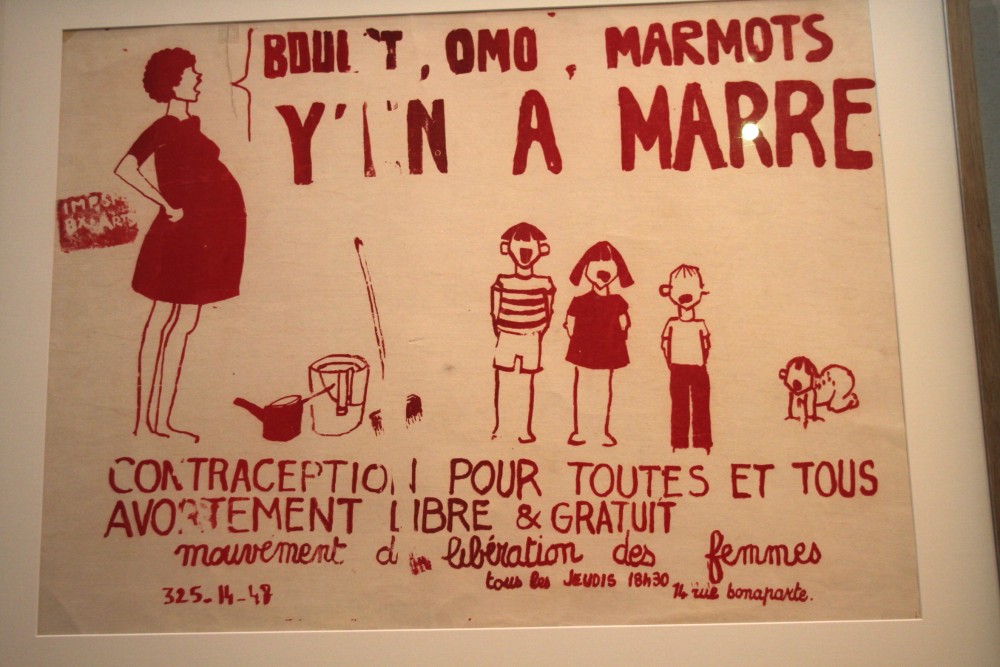 BOULOT, OMO, MARMOTS
Y'EN A MARRE
CONTRACEPTION POUR TOUTES ET TOUS
AVORTEMENT LIBRE & GRATUIT
mouvement de libération des femmes
tous les JEUDIS 18H30
325-14-48
14 rue bonaparte.